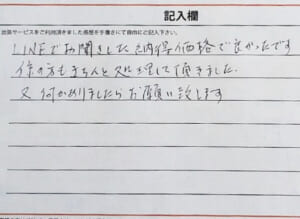 記入欄
出張サービスをご利用頂きました感想を手書きにて自由にご記入下さい。
LINEでお聞きした納得価格で良かったです
後の方もきちんと処理して頂きました。
又何かありましたらお願い致します